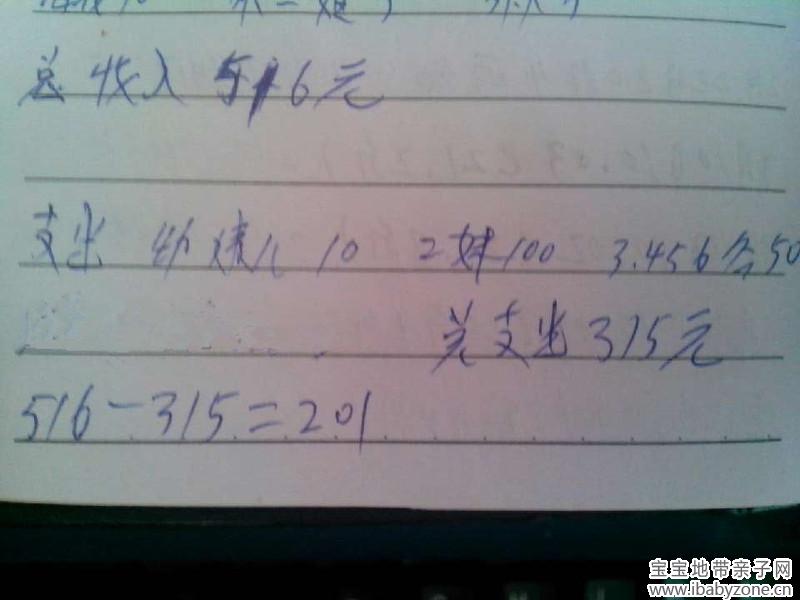 总收入 516元
支出 幼 儿 10 2妹100 3.456各50
共支出315元
516-315=201
宝宝地带亲子网
www.ibabyzone.cn